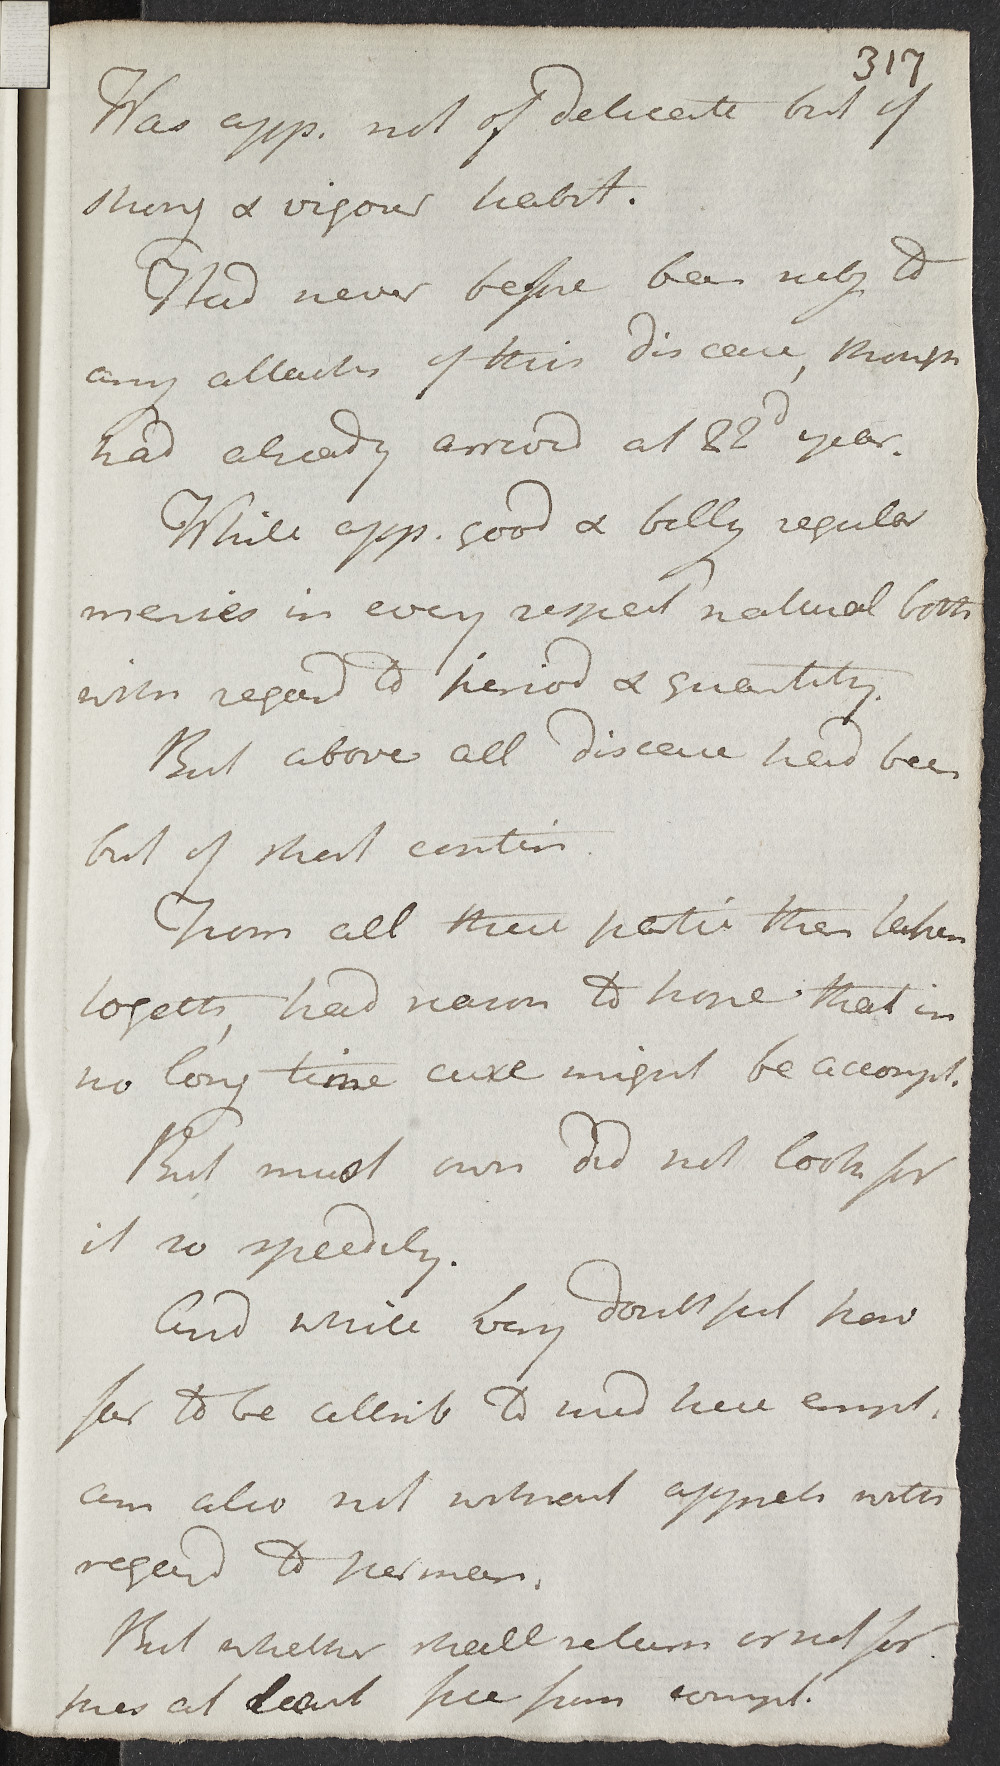 317
Was app. not of delicate but of
strong & vigour habit.
Had never before been subj to
any attacks of this disease, though
had already arrived at 22d year.
While app. good & belly regular
menses in every respect natural both
with regard to period & quantity.
But above all disease had been
but of short contin
From all these partic then taken
togeth, had reason to hope that in
no long time cure might be accompl.
But must own did not look for
it so speedily.
And while very doubtful how
far to be attrib to med here empl.
am also not without appreh with
regard to perman.
But whether shall return or not for
pres at least free from compl.